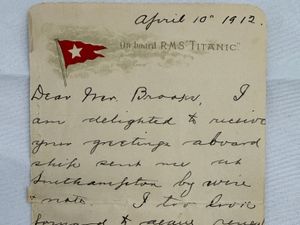 April 10th 1912.
On board R.M.S "TITANIC"
Dear Mr. Brooks, I
am delighted to receive
your greetings aboard
ship sent me at
Southampton by wire
& note. I too look
forward to